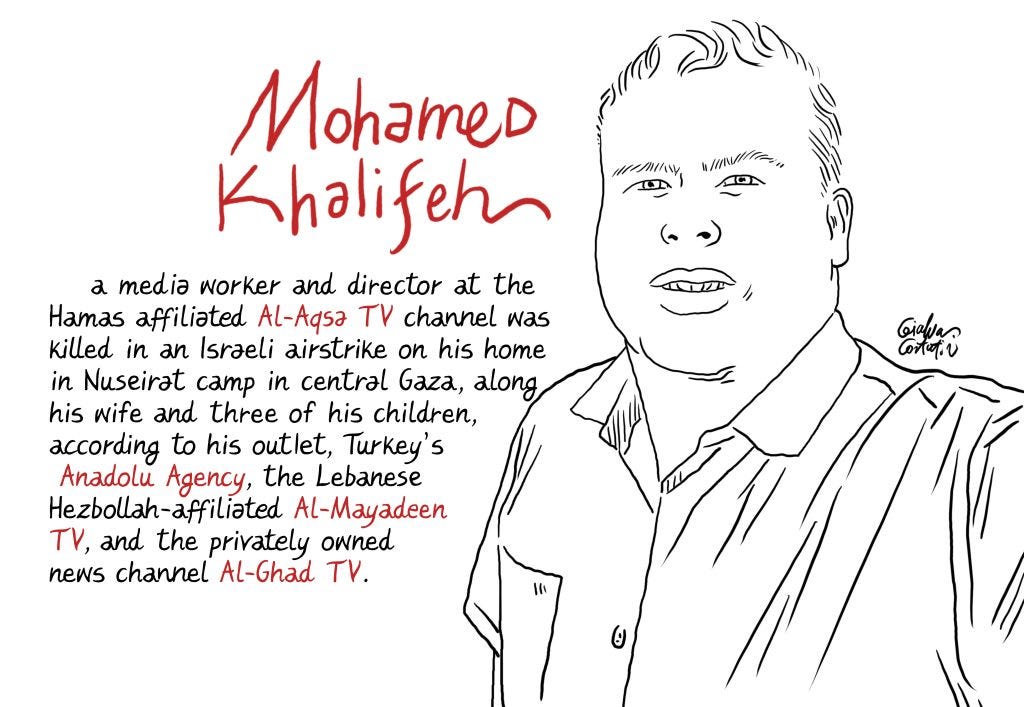 Mohamed
Khalifeh
a media worker and director at the
Hamas affiliated Al-Aqsa TV channel was
killed in an Israeli airstrike on his home
in Nuseirat camp in central Gaza, along
his wife and three of his children,
according to his outlet, Turkey's
Anadolu Agency, the Lebanese
Hezbollah-affiliated Al-Mayadeen
TV, and the privately owned
news channel Al-Ghad TV.